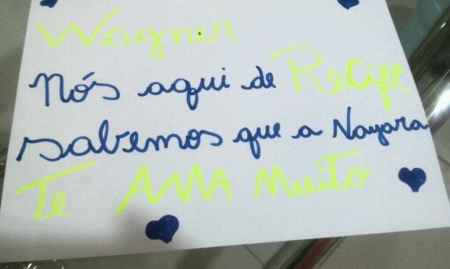 Wagner
Nós aqui de Recife
sabemos que a Nayara
Te AMA Muito